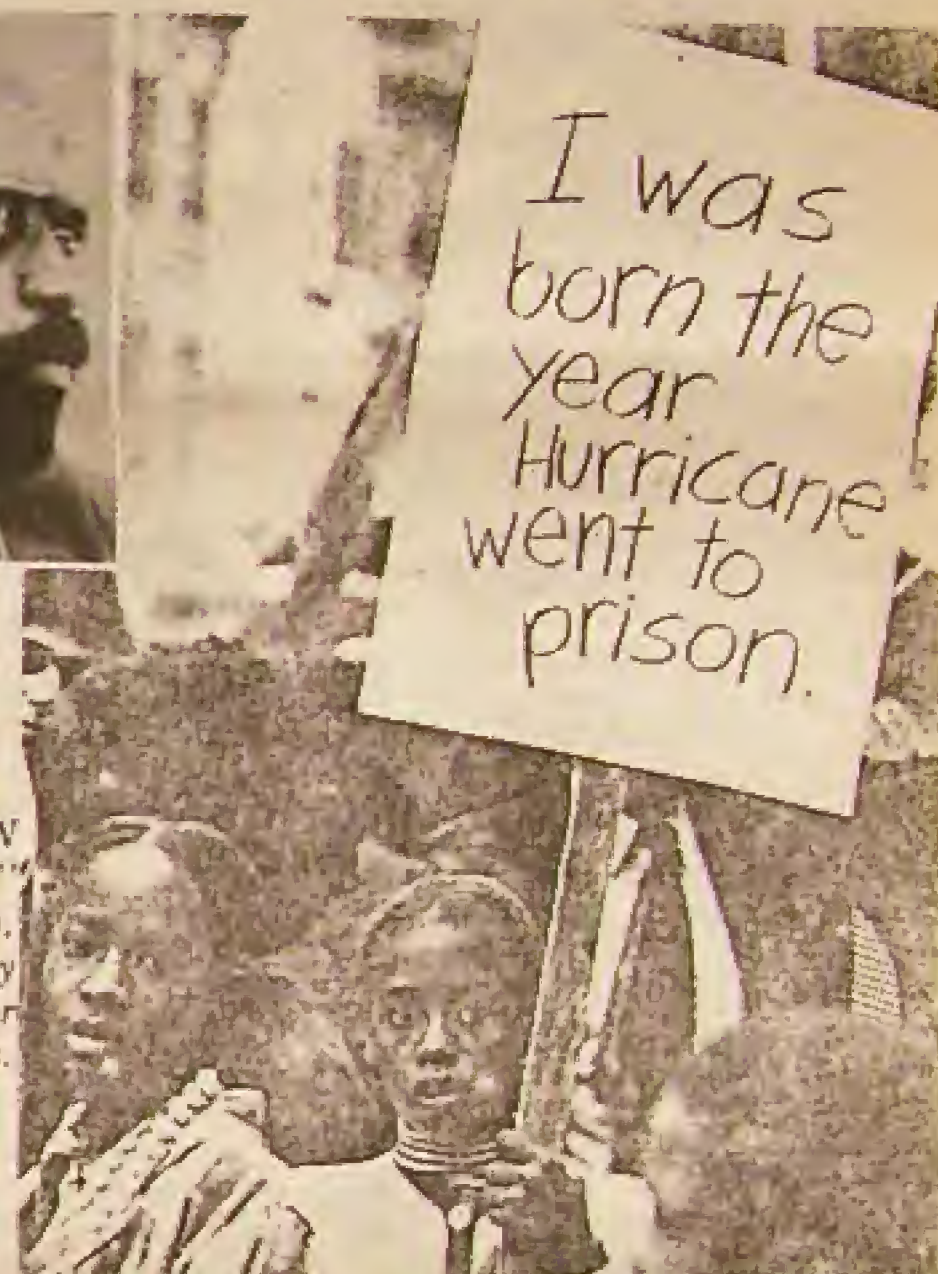 I was
born the
year
Hurricane
went to
prison.